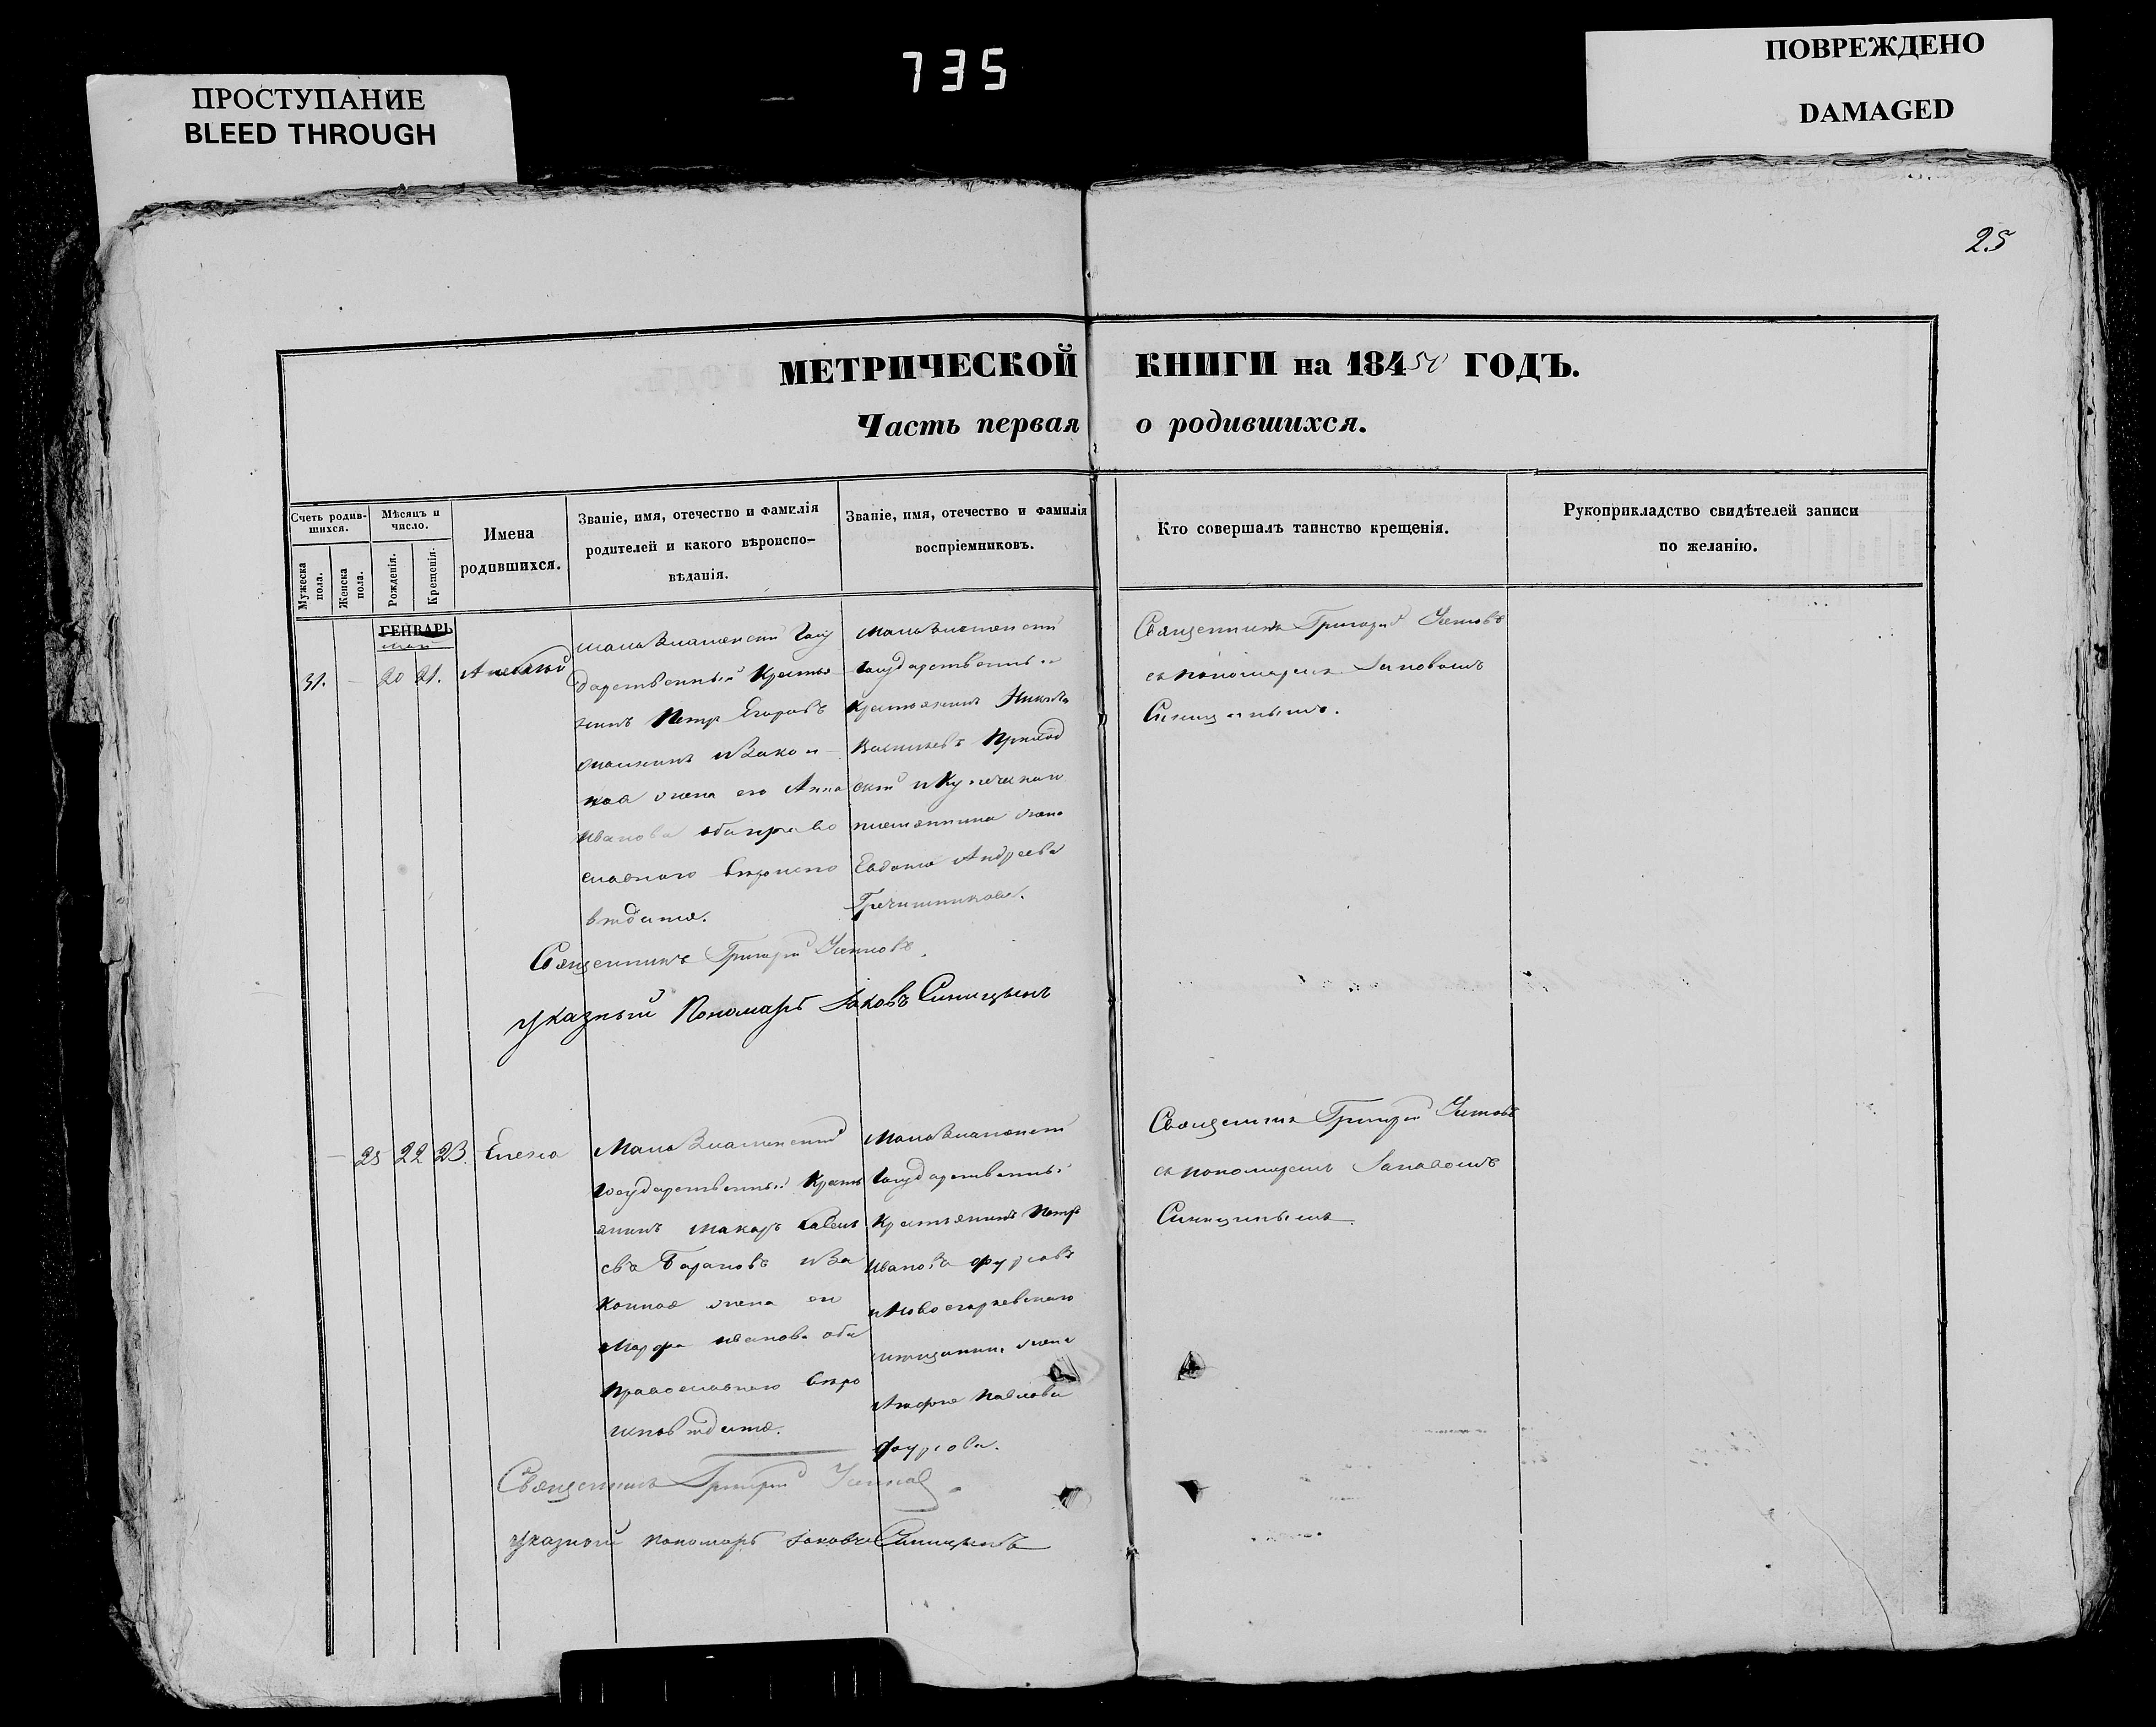 ПРОСТУПАНИЕ
BLEED THROUGH
735
ПОВРЕЖДЕНО
DAMAGED
25
МЕТРИЧЕСКОЙ КНИГИ на 18450 ГОДЪ.
Часть первая о родившихся.
Счетъ родив-
шихся.
Мужеска пола.
Женска пола.
Мѣсяцъ и
число.
Рожденія.
Крещенія.
Имена
родившихся.
Званіе, имя, отечество и фамилія
родителей и какого вѣроиспо-
вѣданія.
Званіе, имя, отечество и фамилія
воспріемниковъ.
Кто совершалъ таинство крещенія.
Рукоприкладство свидѣтелей записи
по желанію.
ГЕНВАРЬ
май
31. – 20 21. Алексѣй
Малознаменский Госу
дарственный Крестья
нинъ Петръ Егоровъ
и Закон
ная жена его Анна
Иванова оба право
славнаго вѣроиспо
вѣданія.
Малознаменский
Государственный
Крестьянинъ Никита
Васильевъ
жена
Евдокия Андреева
Гречишникова.
Священникъ Григорий
съ пономаремъ Іаковомъ
Синицынымъ.
Священникъ Григорий
указный Пономарь Іаковъ Синицынъ
– 25 22 23. Елена
Малознаменский
Государственный Кресть
янинъ Макаръ Савель
евъ Барановъ и За
конная жена его
Марфа Иванова оба
православнаго вѣро
исповѣданія.
Малознаменский
Государственный
Крестьянинъ Петръ
Ивановъ Фурсовъ
и Новогеоргиевскаго
мещанина жена
Агафия Павлова
Фурсова.
Священникъ Григорий
съ пономаремъ Іаковомъ
Синицынымъ.
Священникъ Григорий
указный пономарь Іаковъ Синицынъ